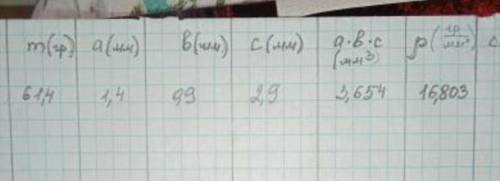 m(гр) a(мм) b(мм) c(мм) a·b·c (мм³) ρ(гр/мм³) c
61,4 1,4 0,9 2,9 3,654 16,803